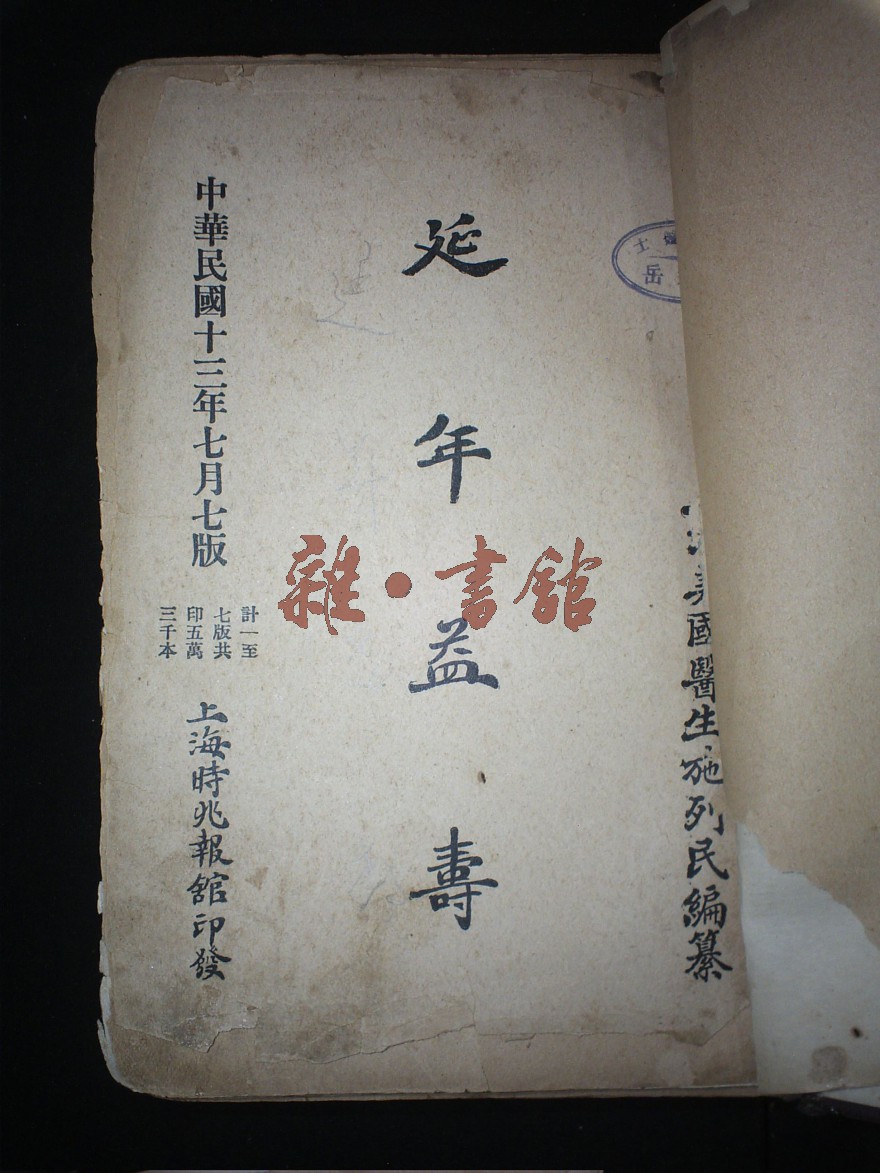 美國醫生施列民編纂
延年益壽
中華民國十三年七月七版
計一至
七版共
印五萬
三千本
上海時兆報館印發
雜·書館
士
岳